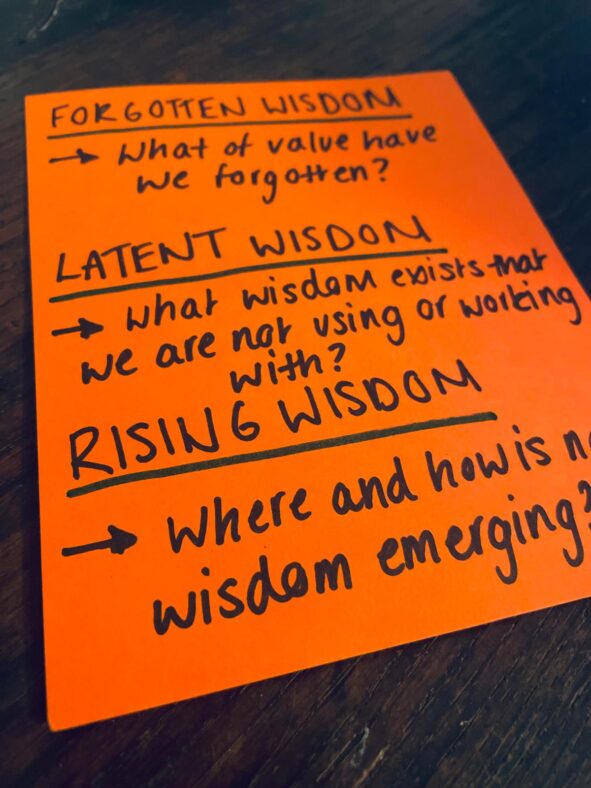 FORGOTTEN WISDOM
→ What of value have
we forgotten?
LATENT WISDOM
→ What wisdom exists that
we are not using or working
with?
RISING WISDOM
→ Where and how is
wisdom emerging?